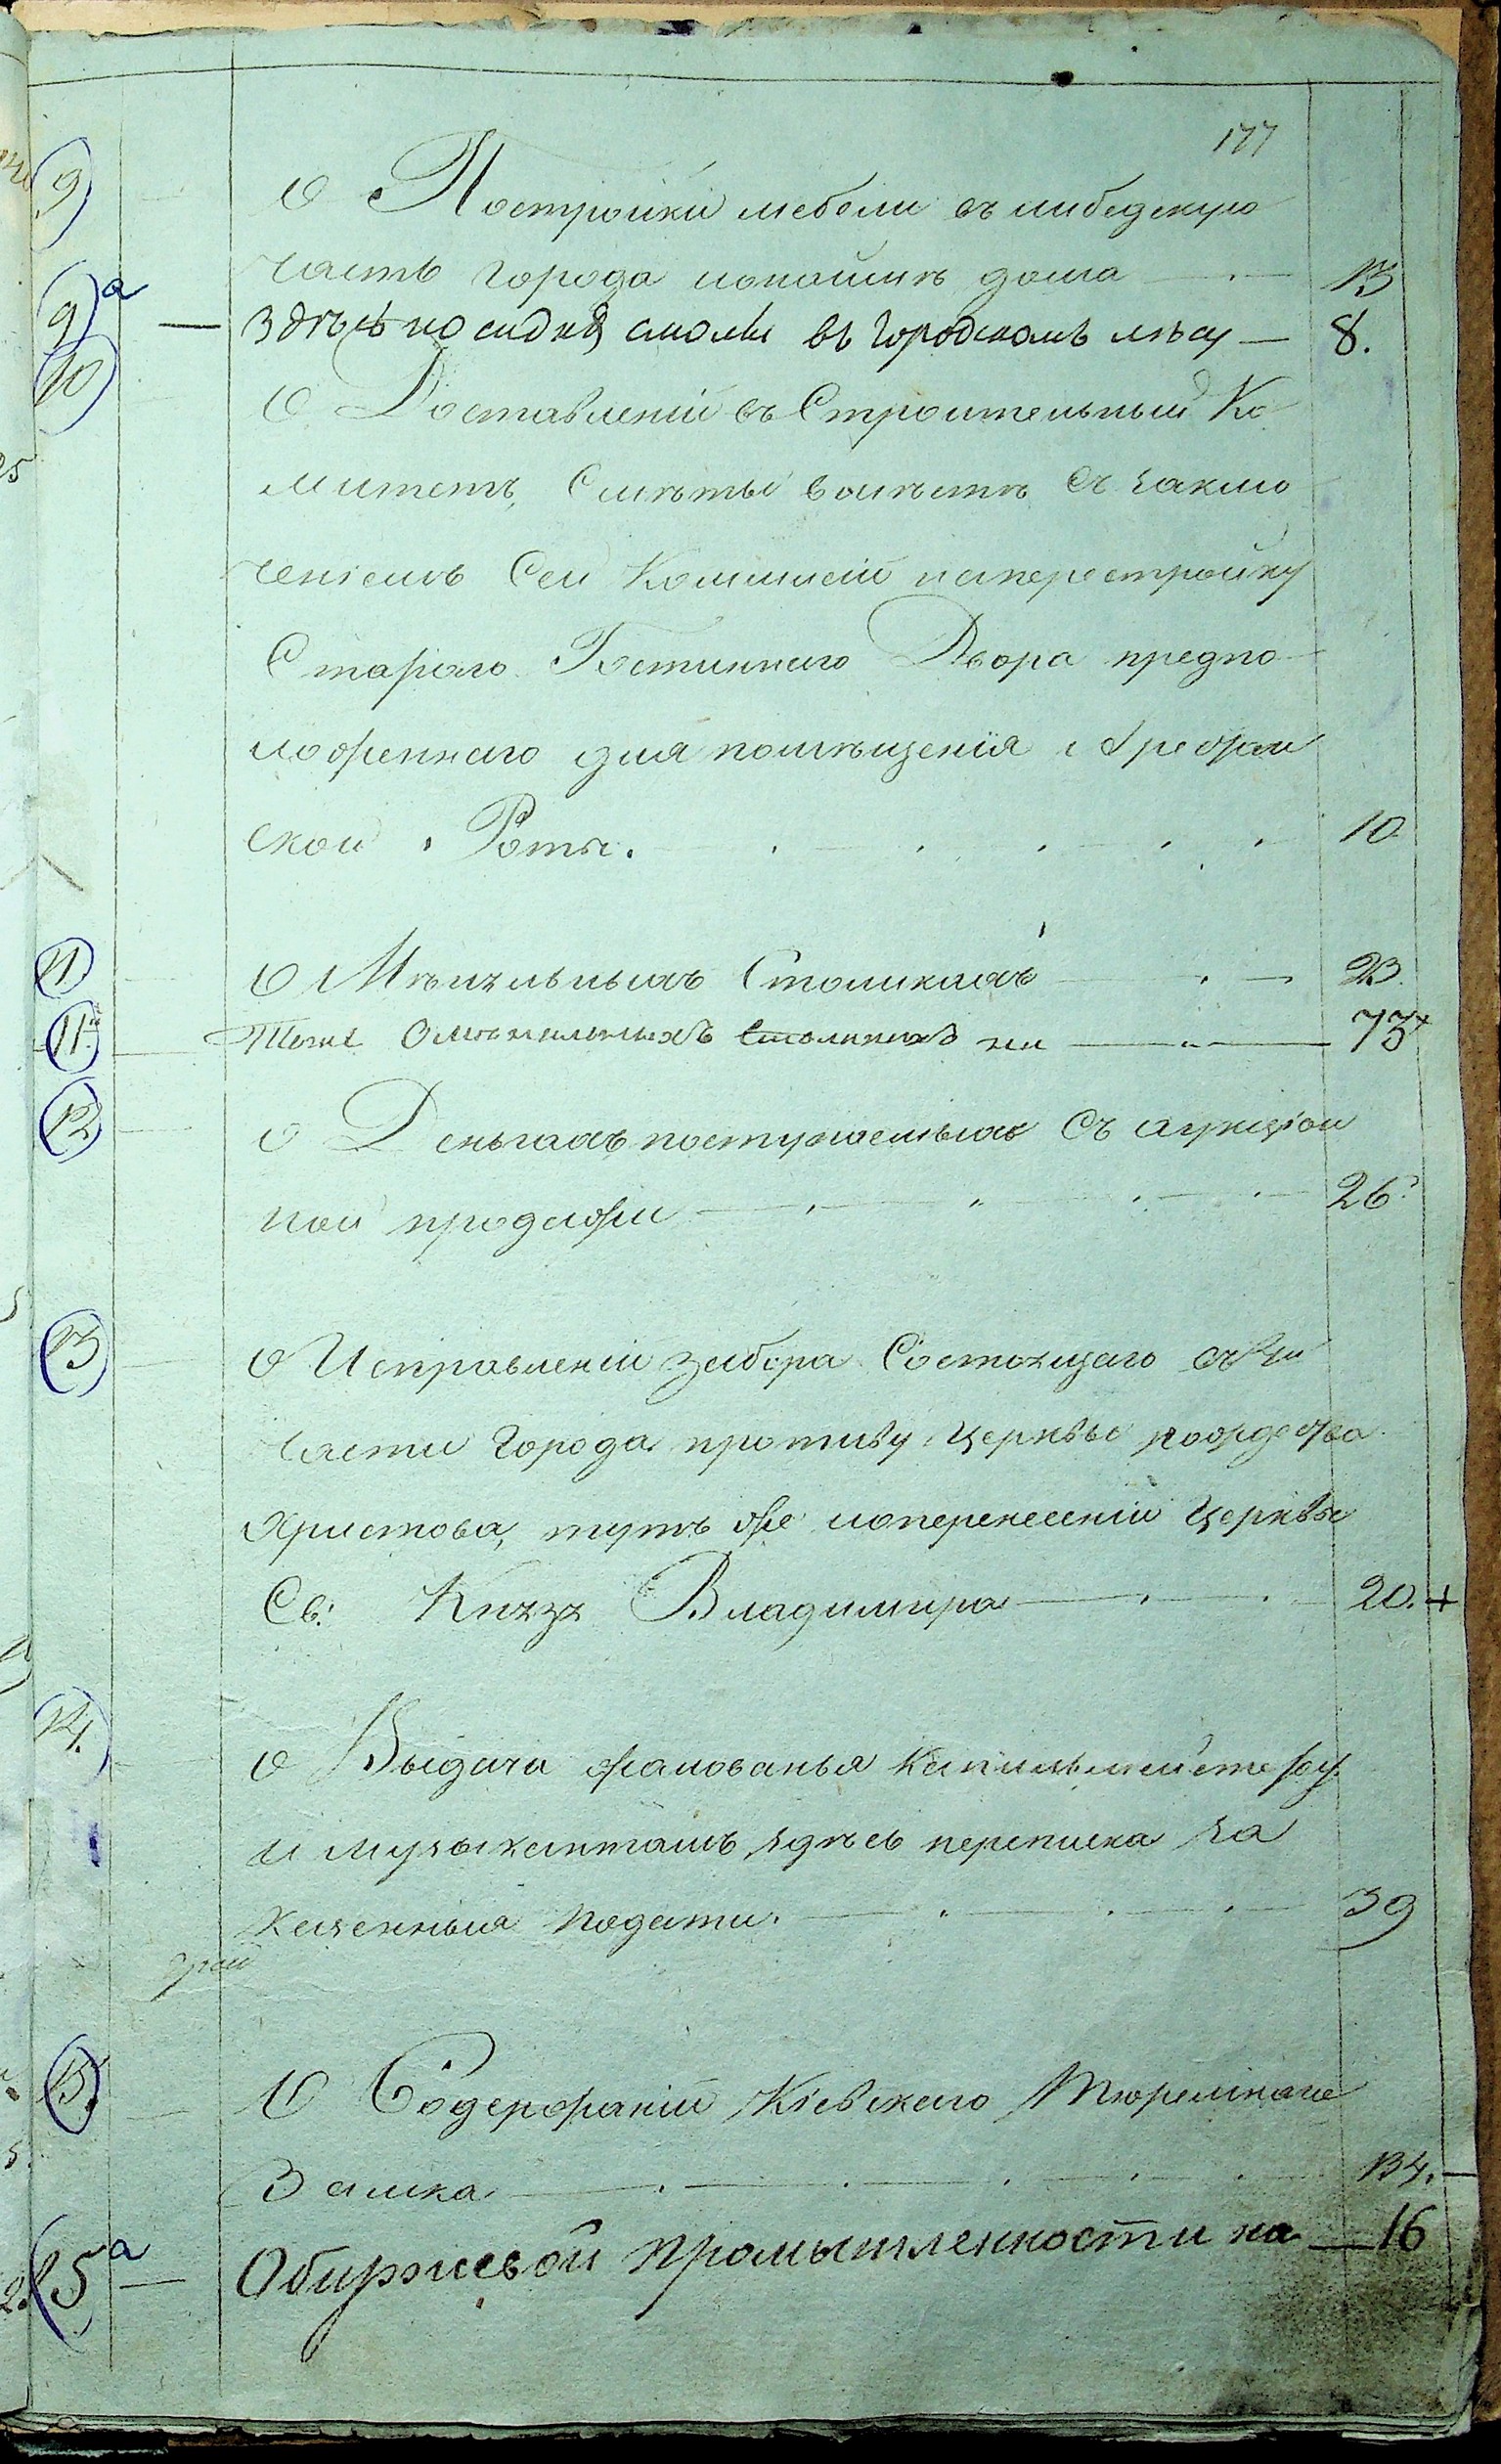 177
9 О Постройки мебели въ либедскую
часть города попатить дома — 13
9а — Здѣсь по сидкѣ смолы въ Городскомъ лѣсу — 8.
10 О Доставленіи въ Строительный Ко
митетъ, Смѣты вмѣстѣ съ заклю
ченіемъ Сей Коммисіи наперестройку
Стараго Гостиннаго Двора предпо
ложеннаго для помѣщенія Арестан
ской Роты. 10
11 О Мѣнильныхъ Столикахъ — 23.
11.а Тоже О мѣнильныхъ столикахъ на — 73
12 О Деньгахъ поступающихъ Съ аукціон
ной продажи — 26
13 О Исправленіи забора Состоящаго въ
части города противу Церквы рождества
Христова, тутъ же поперенесеніи Церквы
Св: Князя Владимира — 20.+
14. О Выдачи жалованья Капильмейстеру
и музыкантамъ, здѣсь переписка за
казенныя подати. — 39
15. О Содержаніи Кіевскаго Тюремнаго
Замка — 134.—
15а — О биржевой промышленности на — 16